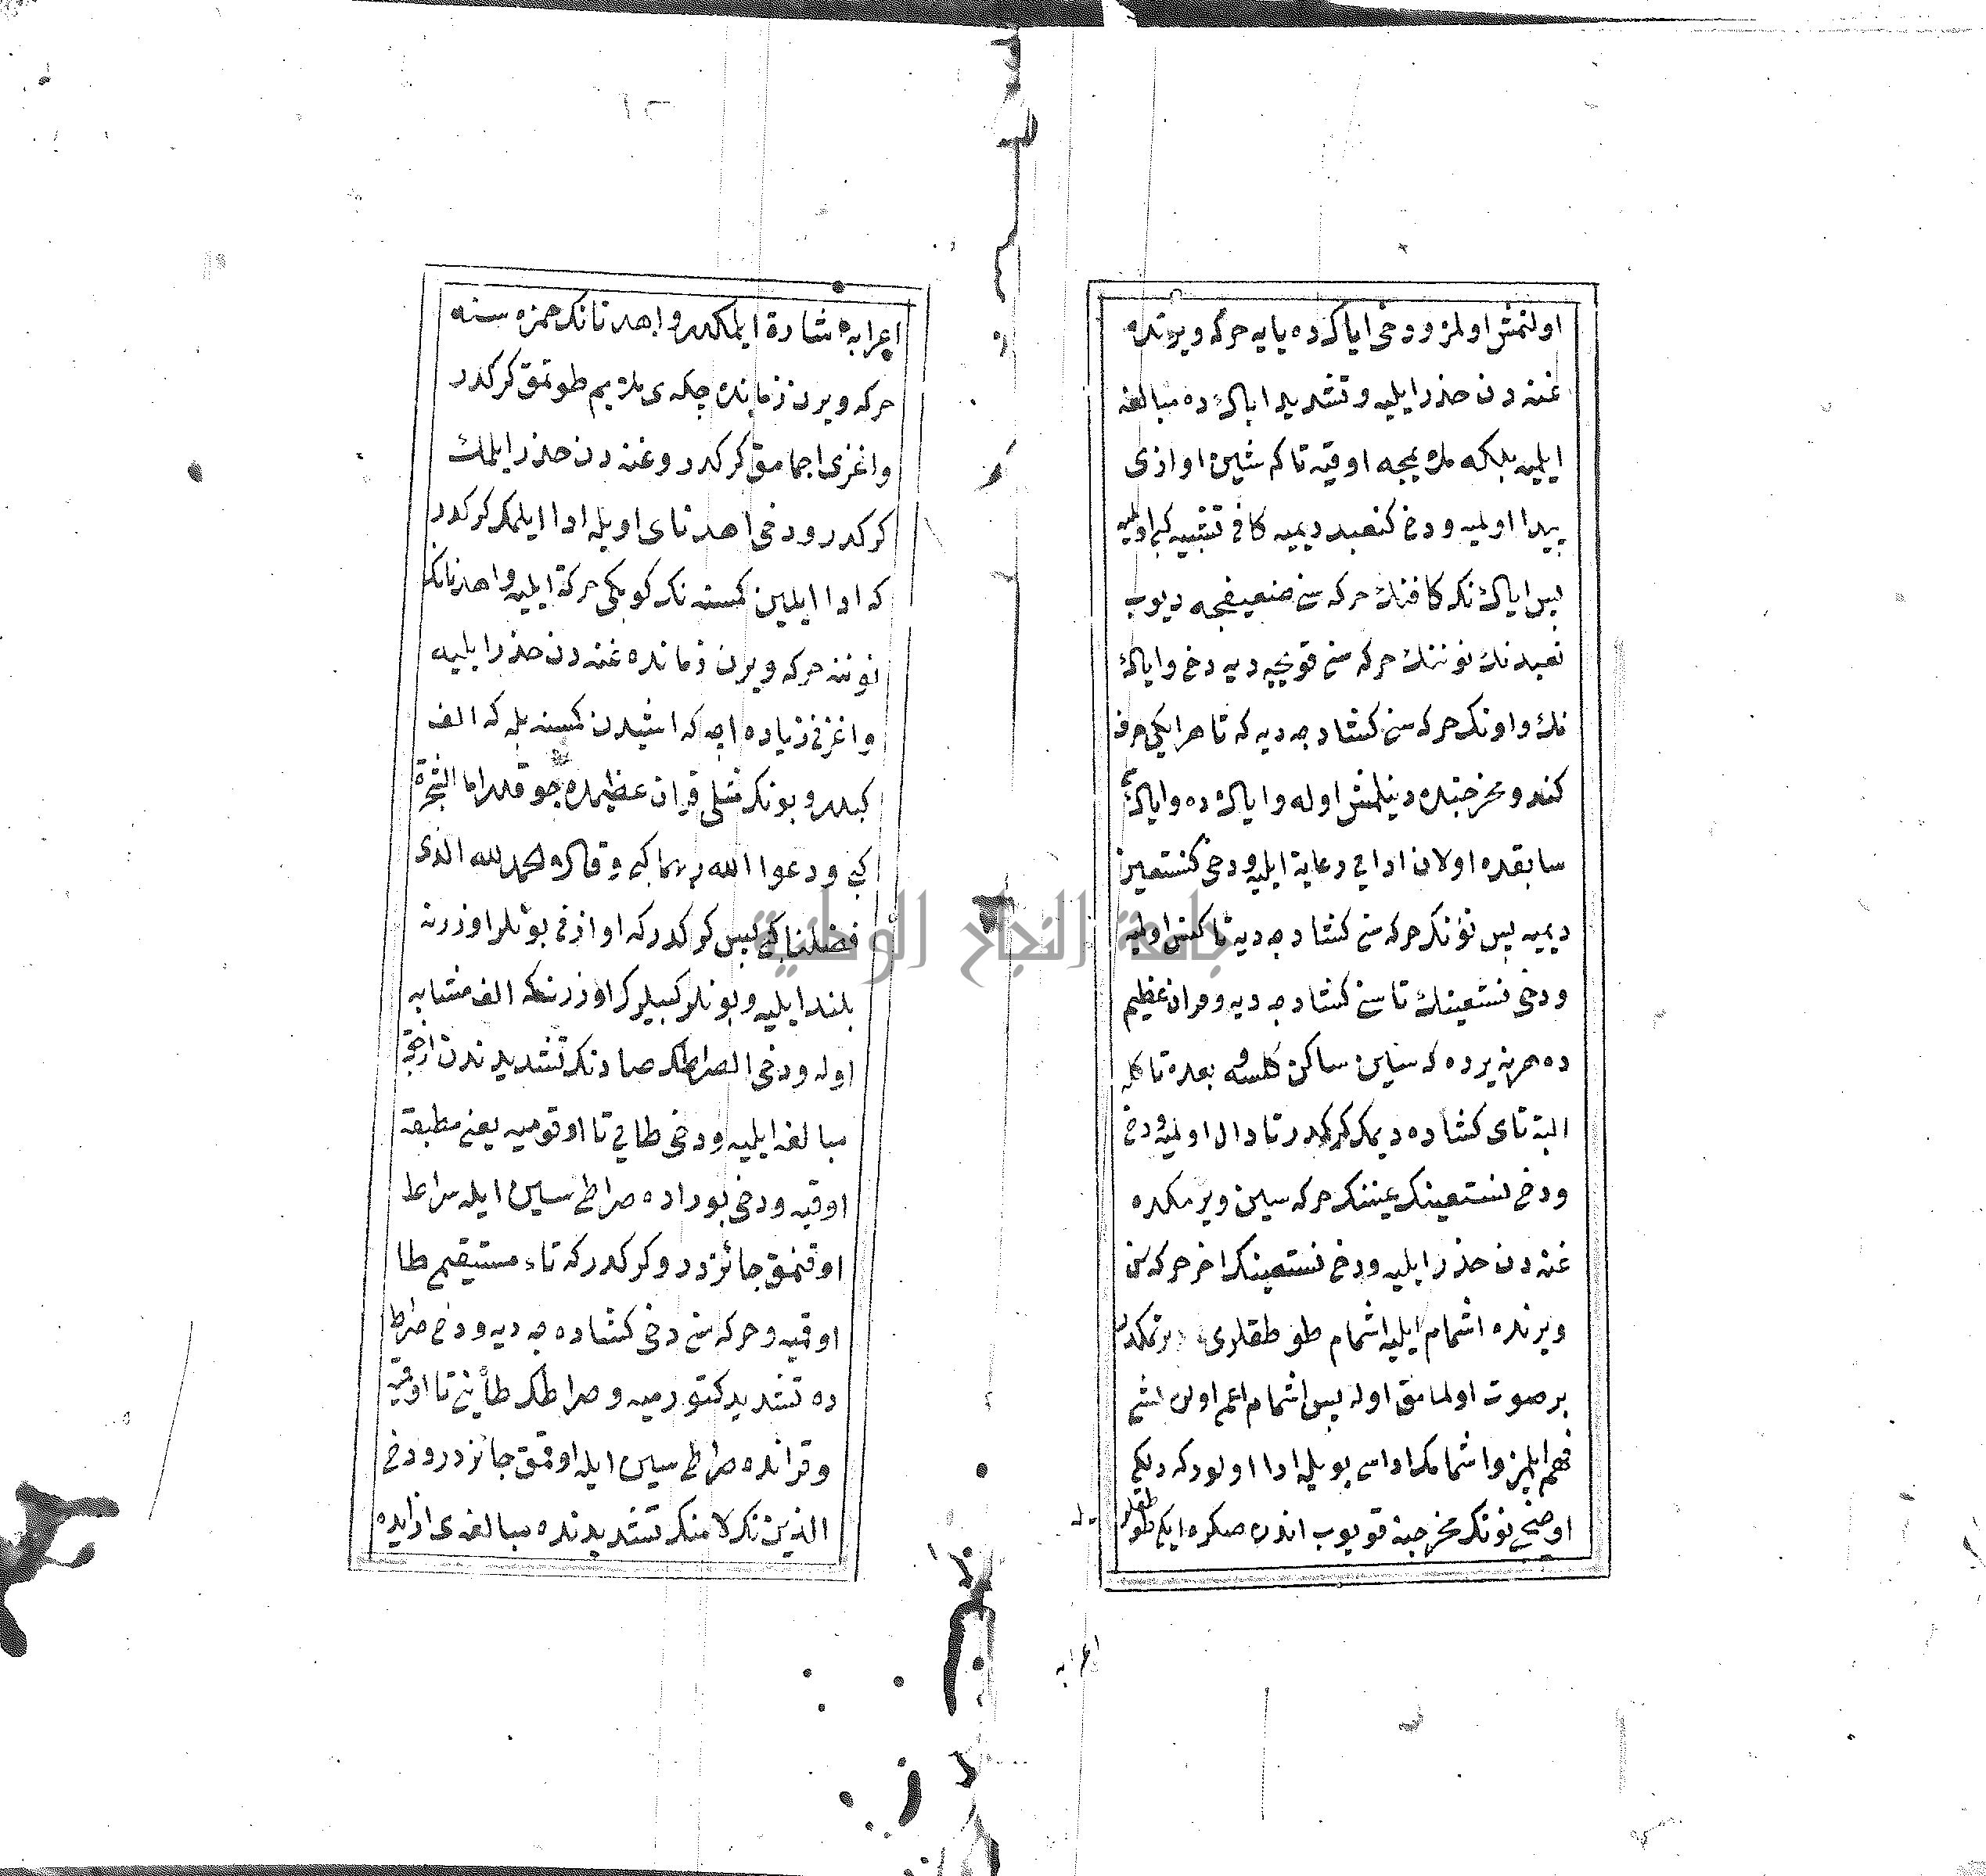 اولنمش اولمز ودخی ایاک ده یایه حرکه ویرنده
غنه دن حذر ایلیه و تشدید ایاک ده مبالغه
ایلمیه بلکه ملایمجه اوقیه تاکم شین اوازی
پیدا اولمیه ودخی کنعبد دیمیه کاف تشبیه کبی اولمیه
پس ایاک نک کافنک حرکه سنی ضعیفجه دیوب
نعبدنک نوننک حرکه سنی قویجه دیه دخی وایاک
نک واونک حرکه سنی کشاده جه دیه که تا هر ایکی حرف
کندو مخرجنده دینلمش اوله وایاک ده وایاک
سابقده اولان ادایی رعایة ایلیه ودخی کنستعین
دیمیه پس نونک حرکه سنی کشاده جه دیه تا کنس اولمیه
ودخی نستعینک تاسنی کشاده جه دیه وقران عظیم
ده هر نه یرده که سین ساکن کلسه و بعده تا کله
البته تای کشاده دیمک کرکدر تا دال اولمیه ودخی
ودخی نستعینک عیننک حرکه سین ویرمکده
غنه دن حذر ایلیه ودخی نستعینک اخر حرکه سن
ویرنده اشمام ایلیه اشمام طوطقلری برتمکدر
بر صوت اولمامق اوله پس اشمام اعم اولن اشی
فهم ایلمز واشمامک اداسی بویله ادا اولور که دیلکی
اوجنی نونک مخرجینه قویوب اندن صکره ایکی طوطقلر
یله
اعرابه
اعرابه اشارة ایلمکدر واهدنا نک همزه سنه
حرکه ویرن زمانده چکه ی ملایم طوتمق کرکدر
واغزی اچمامق کرکدر وغنه دن حذر ایلمک
کرکدر ودخی اهدنای اویله ادا ایلمک کرکدر
که ادا ایلین کمسنه نک کوبکی حرکة ایلمیه واهدنانک
نوننه حرکه ویرن زمانده غنه دن حذر ایلیه
واغزنی زیاده اچه که اشیدن کمسنه بله که الف
کبیدر وبونک مثلی قران عظیمده چوقدر اما الشجرة
کبی ودعوا الله ربهما کبی وقالا الحمد لله الذی
فضلنا کبی پس کرکدر که اوازنی بونلر اوزرنه
بلند ایلیه وبونلر کبیلرک اوزرنه که الف مشابه
اوله ودخی الصراطک صادنک تشدیدندن ارتجه
مبالغه ایلیه ودخی طایی تا اوقومیه یعنی مطبقه
اوقیه ودخی بوراده صراطی سین ایله سراط
اوقنمق جائزدر وکرکدر که تاء مستقیمی طا
اوقمیه وحرکه سنی دخی کشاده جه دیه ودخی صراط
ده تشدید کتورمیه وصراطک طاینی تا اوقمیه
وقرانده صراطی سین ایله اوقمق جائزدر ودخی
الذین نک لامنک تشدیدنده مبالغه ی ازایده
جامعة النجاح الوطنية